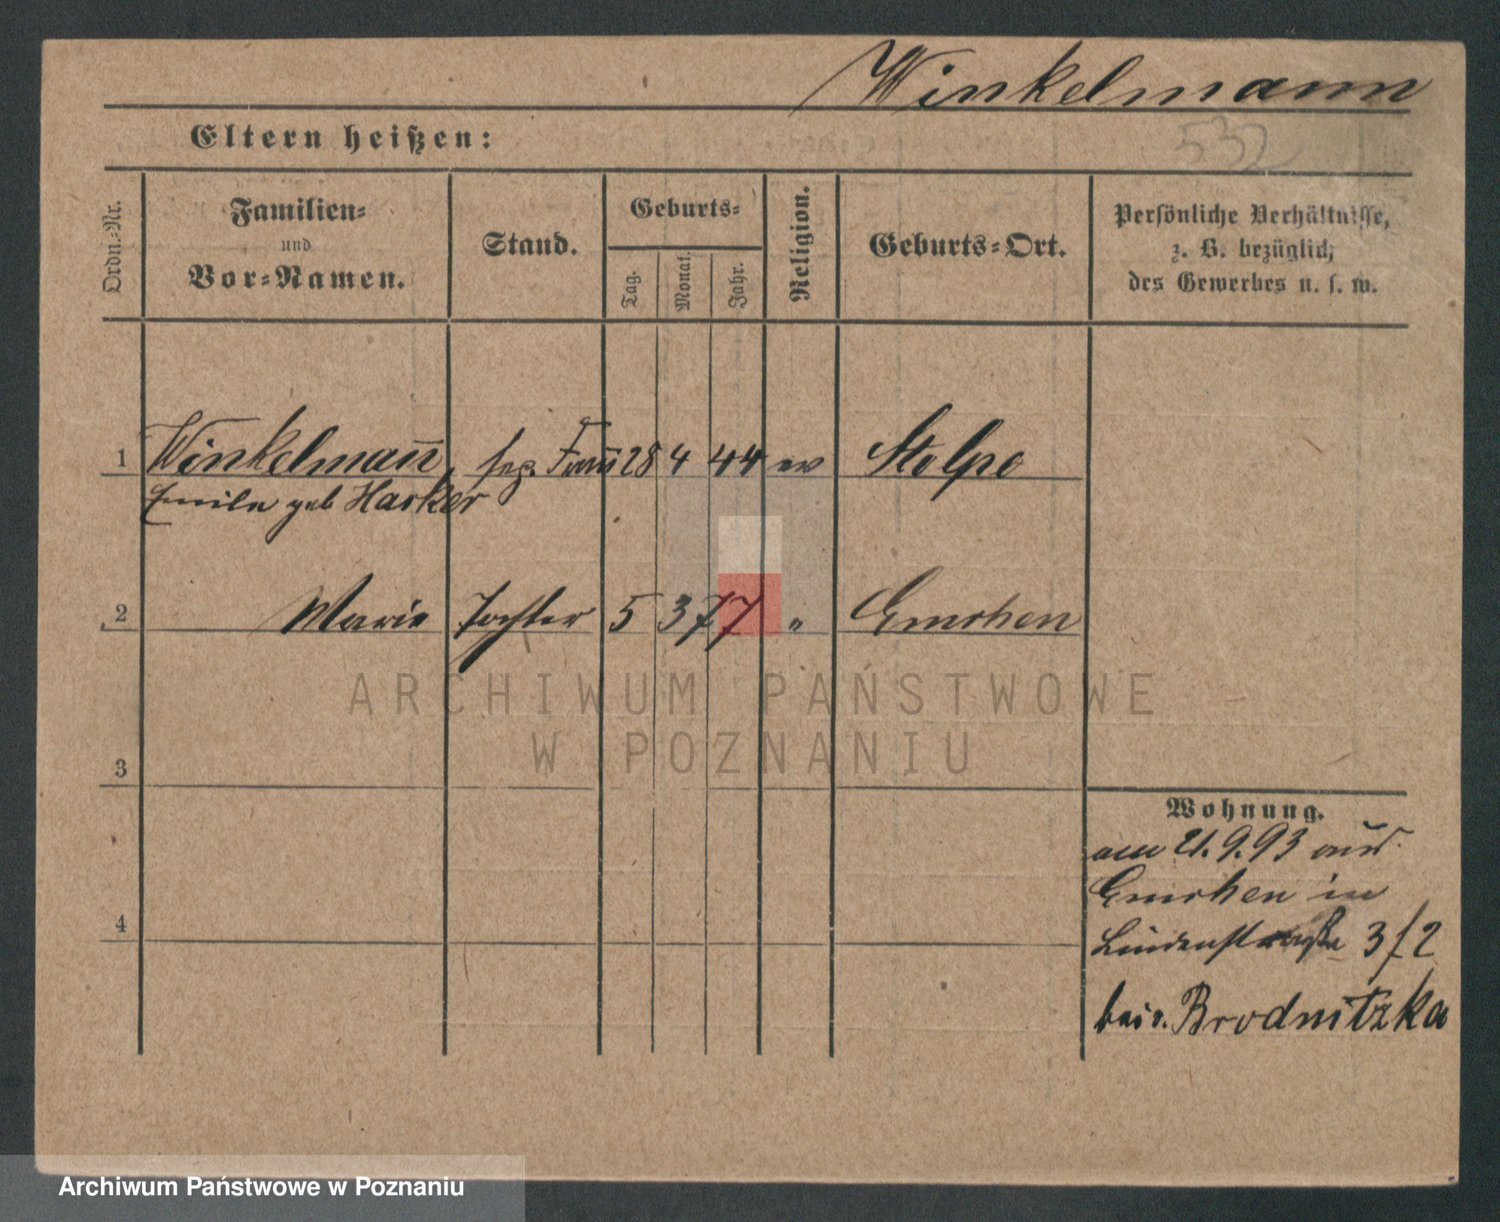 Winkelmann
532
Eltern heißen:
Ordn.-Nr.
Familien-
und
Vor-Namen.
Stand.
Geburts-
Tag.
Monat.
Jahr.
Religion.
Geburts-Ort.
Persönliche Verhältnisse,
z. B. bezüglich
des Gewerbes u. s. w.
1 Winkelmañ, Frau 28 4 44 ev Stolpe
geb Harker
2 Marie Tochter 5 3 77 " Emchen
3
4
ARCHIWUM PAŃSTWOWE
W POZNANIU
Wohnung.
am 21.9.93 aus
Emchen in
3/2
Brodnitzka
Archiwum Państwowe w Poznaniu